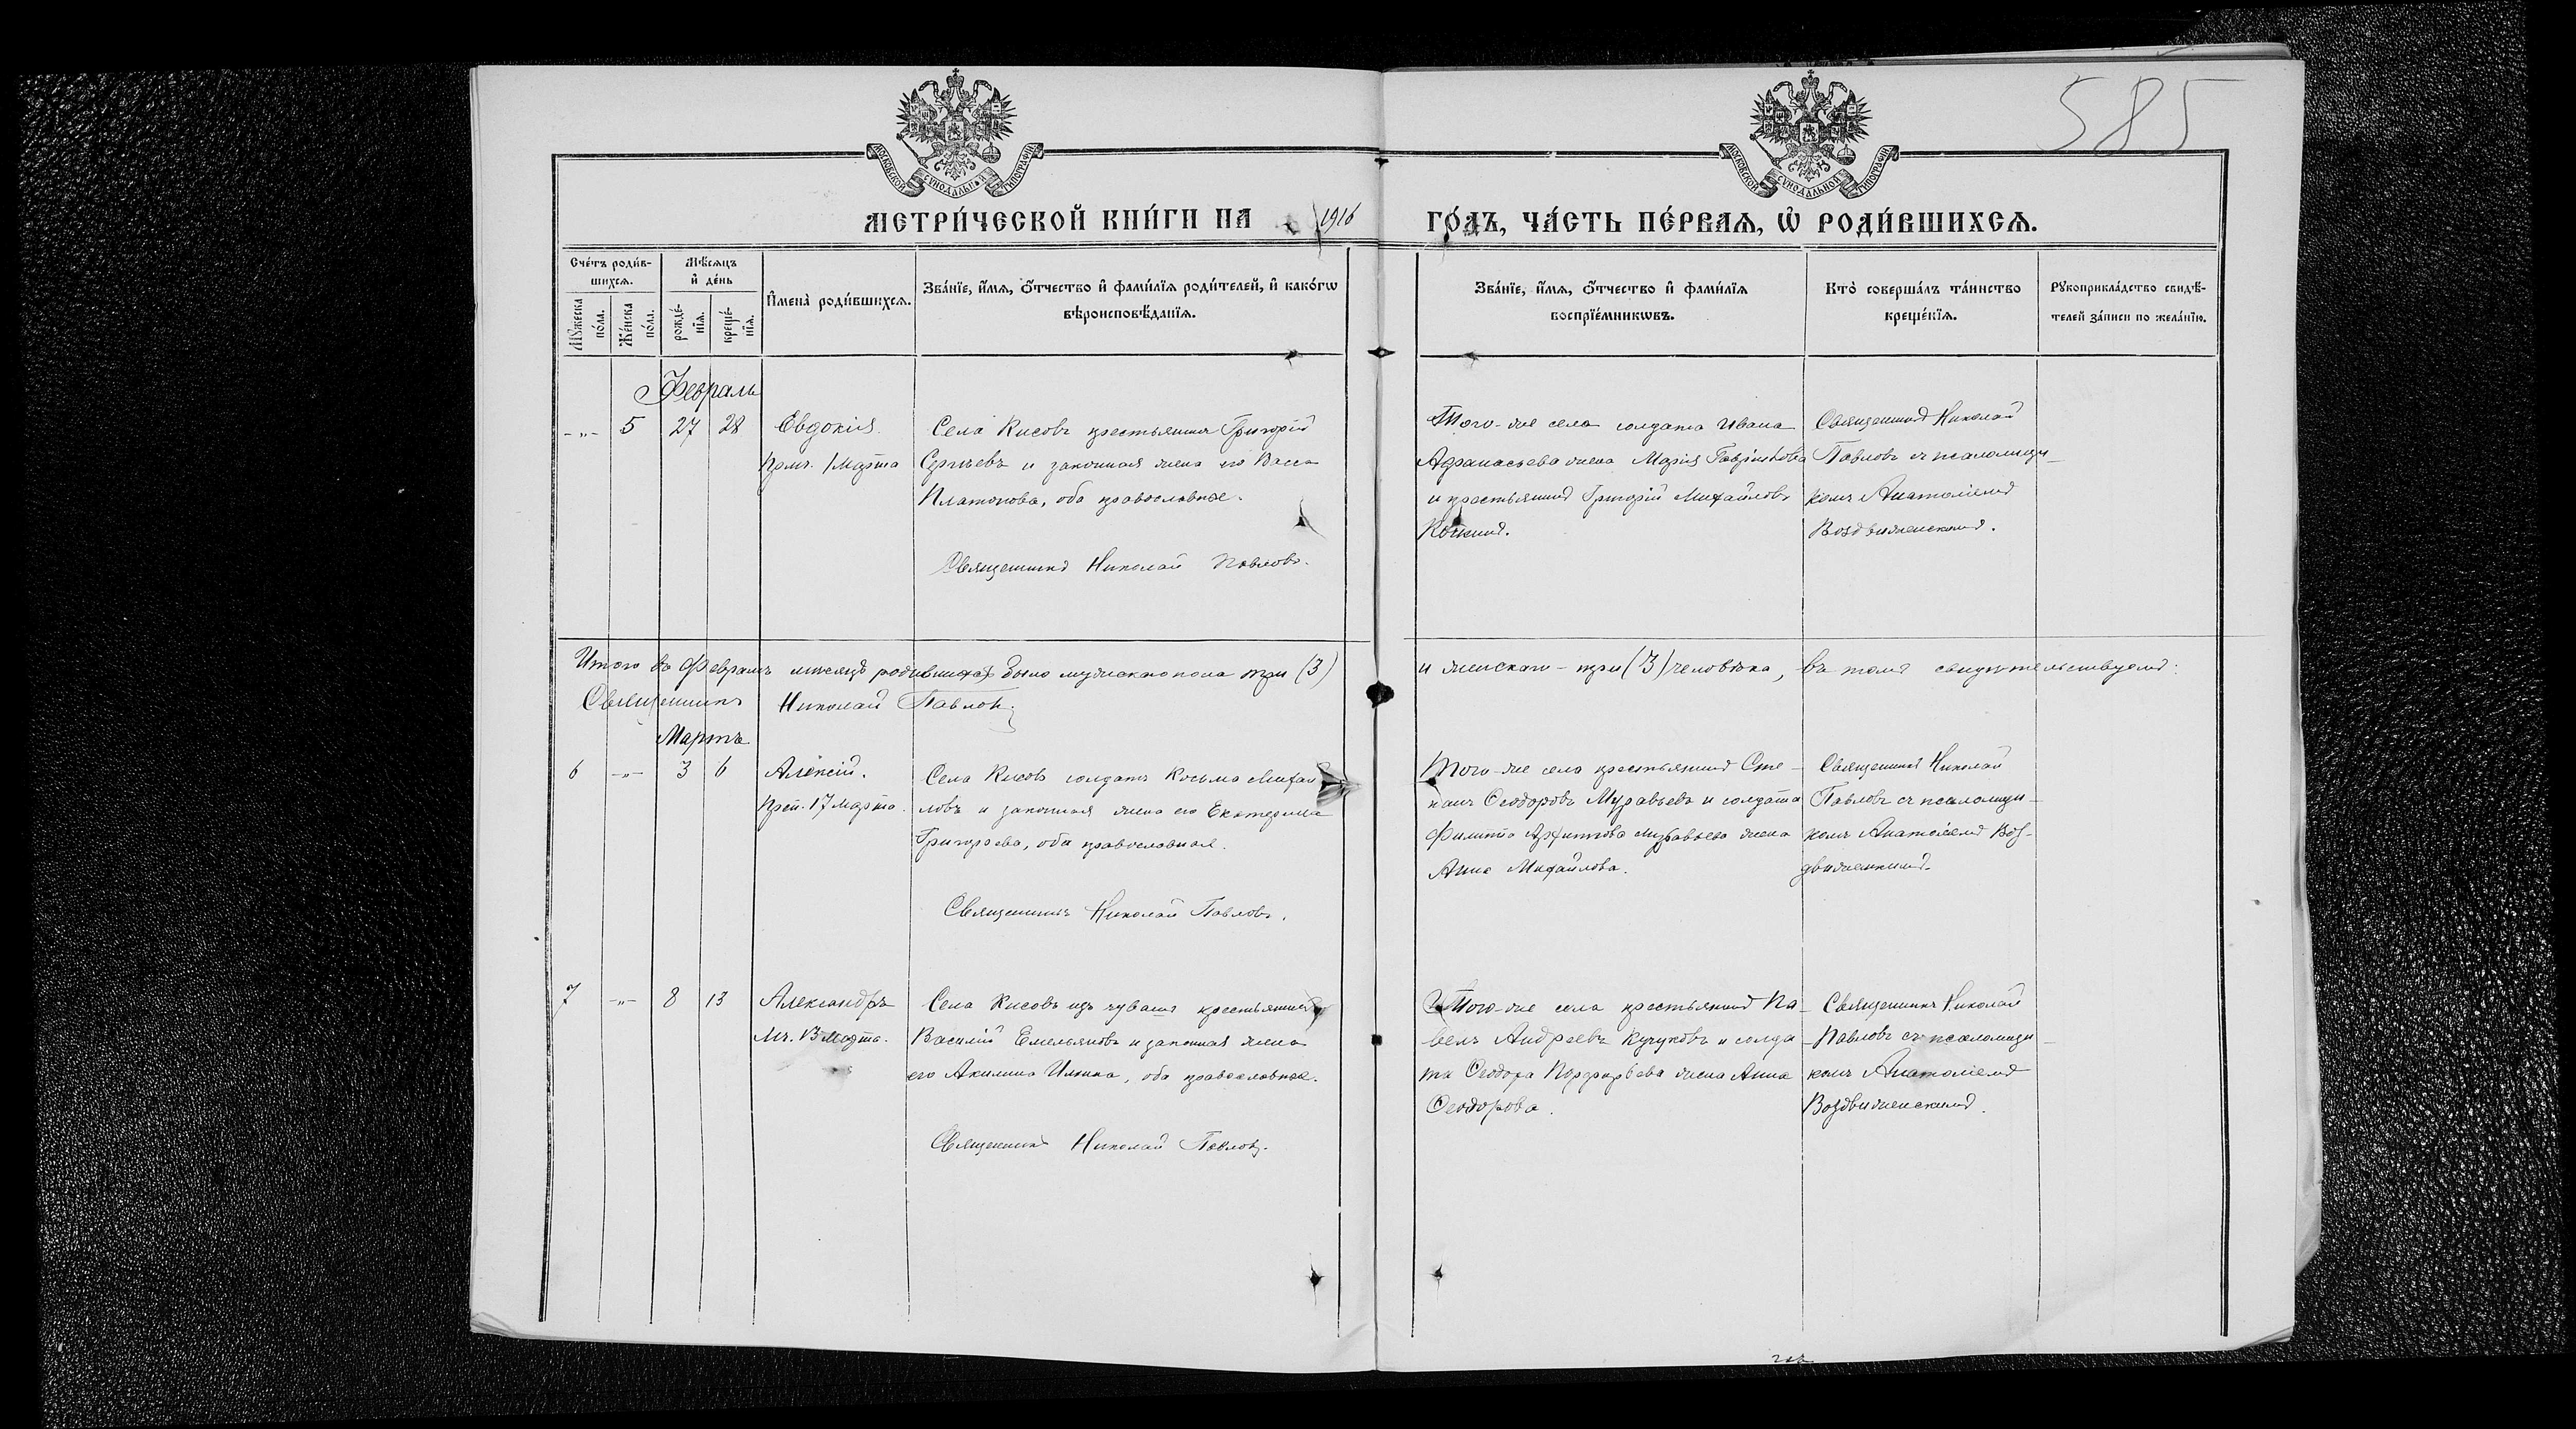 585
МОСКОВСКОЙ СѴНОДАЛЬНОЙ ТИПОГРАФІИ
МОСКОВСКОЙ СѴНОДАЛЬНОЙ ТИПОГРАФІИ
МЕТРИ́ЧЕСКОЙ КНИ́ГИ НА 1916 ГО́ДЪ, ЧА́СТЬ ПЕ́РВАѦ, Ѽ РОДИ́ВШИХСѦ.
Сче́тъ роди́в-
шихсѧ.
Мꙋжеска по́ла.
Же́нска по́ла.
Мѣ́сѧцъ
и҆ де́нь
рожде́-
нїѧ.
креще́-
нїѧ.
И҆мена̀ роди́вшихсѧ.
Зва́нїе, и҆́мѧ, ѻ҆́тчество и҆ фами́лїѧ роди́телей, и҆ како́гѡ
вѣроисповѣ́данїѧ.
Зва́нїе, и҆́мѧ, ѻ҆́тчество и҆ фами́лїѧ
воспрїе́мникѡвъ.
Кто̀ соверша́лъ та́инство
креще́нїѧ.
Рꙋкоприкла́дство свидѣ́-
телей за́писи по жела́нїю.
Февраль
-"- 5 27 28 Евдокія.
прмч. 1 марта
Села Кисовъ крестьянинъ Григорій
Сергѣевъ и законная жена его Васса
Платонова, оба православные.
Священникъ Николай Павловъ.
Того-же села солдата Ивана
Афанасьева жена Марія Гаврилова
и крестьянинъ Григорій Михайловъ
Священникъ Николай
Павловъ съ псаломщи-
комъ Анатоліемъ
Воздвиженскимъ.
Итого въ Февралѣ мѣсяцѣ родившихся было мужскаго пола три (3) и женскаго - три (3) человѣка, въ томъ свидѣтельствуемъ:
Священникъ Николай Павловъ
Мартъ
6 -"- 3 6 Алексій.
Преп. 17 марта.
Села Кисовъ солдатъ Косьма Михай-
ловъ и законная жена его Екатерина
Григорьева, оба православные.
Священникъ Николай Павловъ.
Того-же села крестьянинъ Сте-
панъ Ѳеодоровъ Муравьевъ и солдата
Филиппа Муравьева жена
Анна Михайлова.
Священникъ Николай
Павловъ съ псаломщи-
комъ Анатоліемъ Воз-
движенскимъ.
7 -"- 8 13 Александръ
Мч. 13 марта.
Села Кисовъ изъ чувашъ крестьянинъ
Василій Емельяновъ и законная жена
его Акилина Ильина, оба православные.
Священникъ Николай Павловъ.
Того-же села крестьянинъ Па-
велъ Андреевъ Кучуковъ и солда-
та Ѳеодора Порфирьева жена Анна
Ѳеодорова.
Священникъ Николай
Павловъ съ псаломщи-
комъ Анатоліемъ
Воздвиженскимъ.